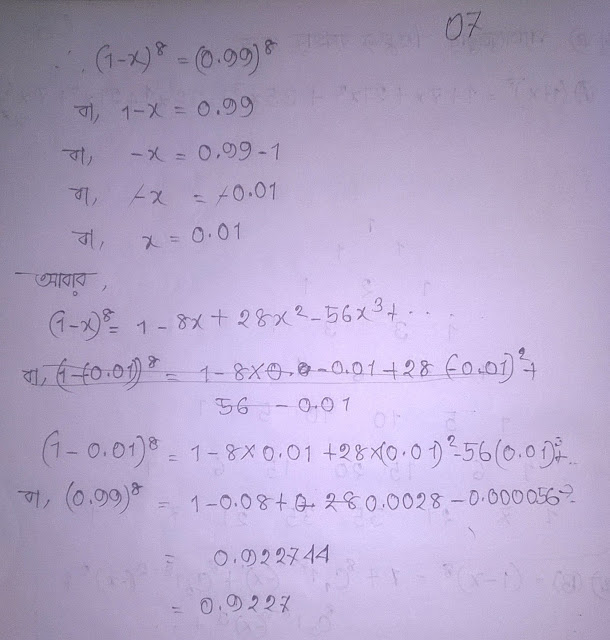 07
∴ (1-x)⁸ = (0.99)⁸
বা, 1-x = 0.99
বা, -x = 0.99-1
বা, -x = -0.01
বা, x = 0.01
আবার,
(1-x)⁸ = 1 - 8x + 28x² - 56x³ + ...
বা, (1-(0.01))⁸ = 1-8×0.0-0.01+28(-0.01)²+
56 - 0.01
(1-0.01)⁸ = 1-8×0.01+28×(0.01)²-56(0.01)³+..
বা, (0.99)⁸ = 1-0.08+0.0028-0.000056
= 0.922744
= 0.9227